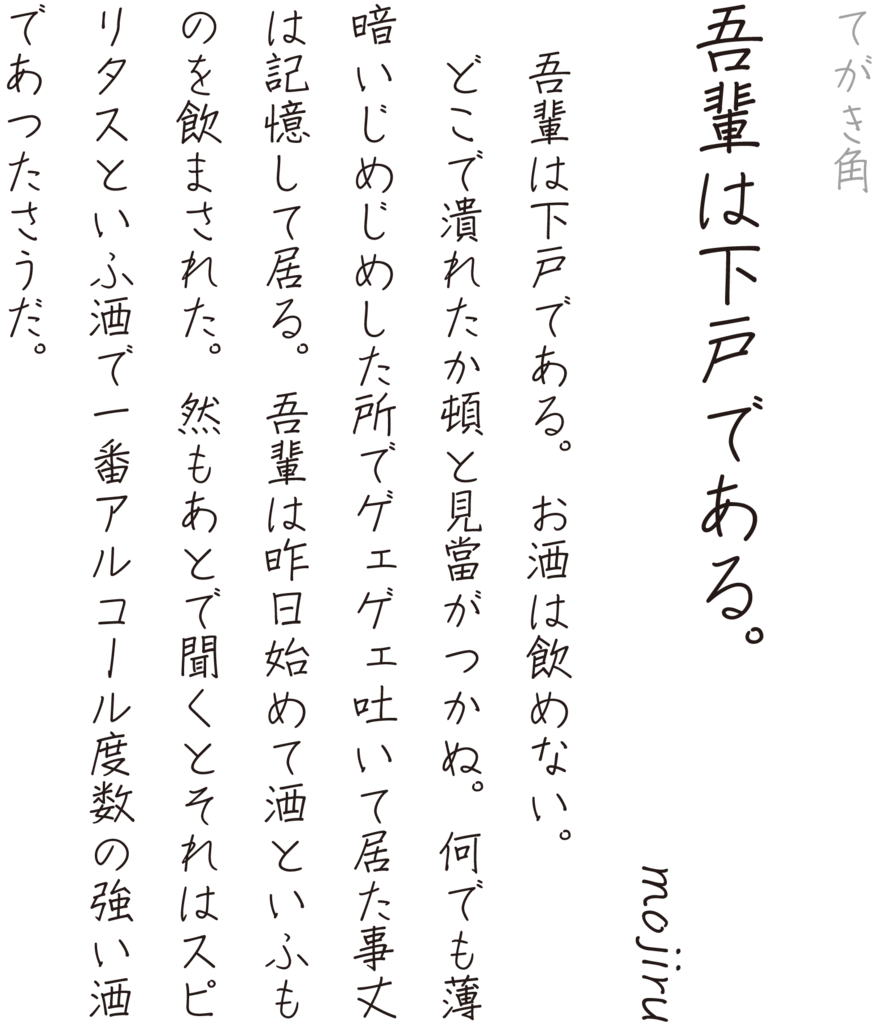 てがき角
吾輩は下戸である。
mojiru
吾輩は下戸である。お酒は飲めない。
どこで潰れたか頓と見當がつかぬ。何でも薄
暗いじめじめした所でゲェゲェ吐いて居た事丈
は記憶して居る。吾輩は昨日始めて酒といふも
のを飲まされた。然もあとで聞くとそれはスピ
リタスといふ酒で一番アルコール度数の強い酒
であつたさうだ。